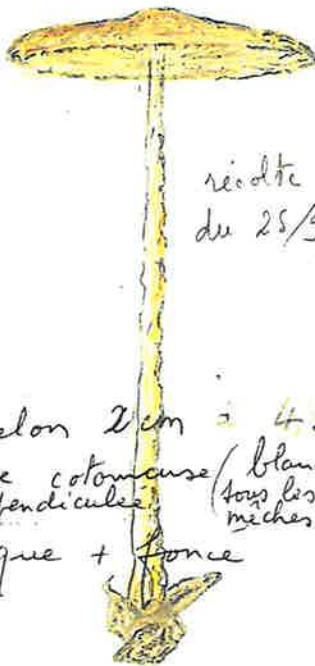 récolte
du 25/9
elon 2 cm à 4
e cotonneuse (blan
endiculée (sous les
mèches
que + foncé